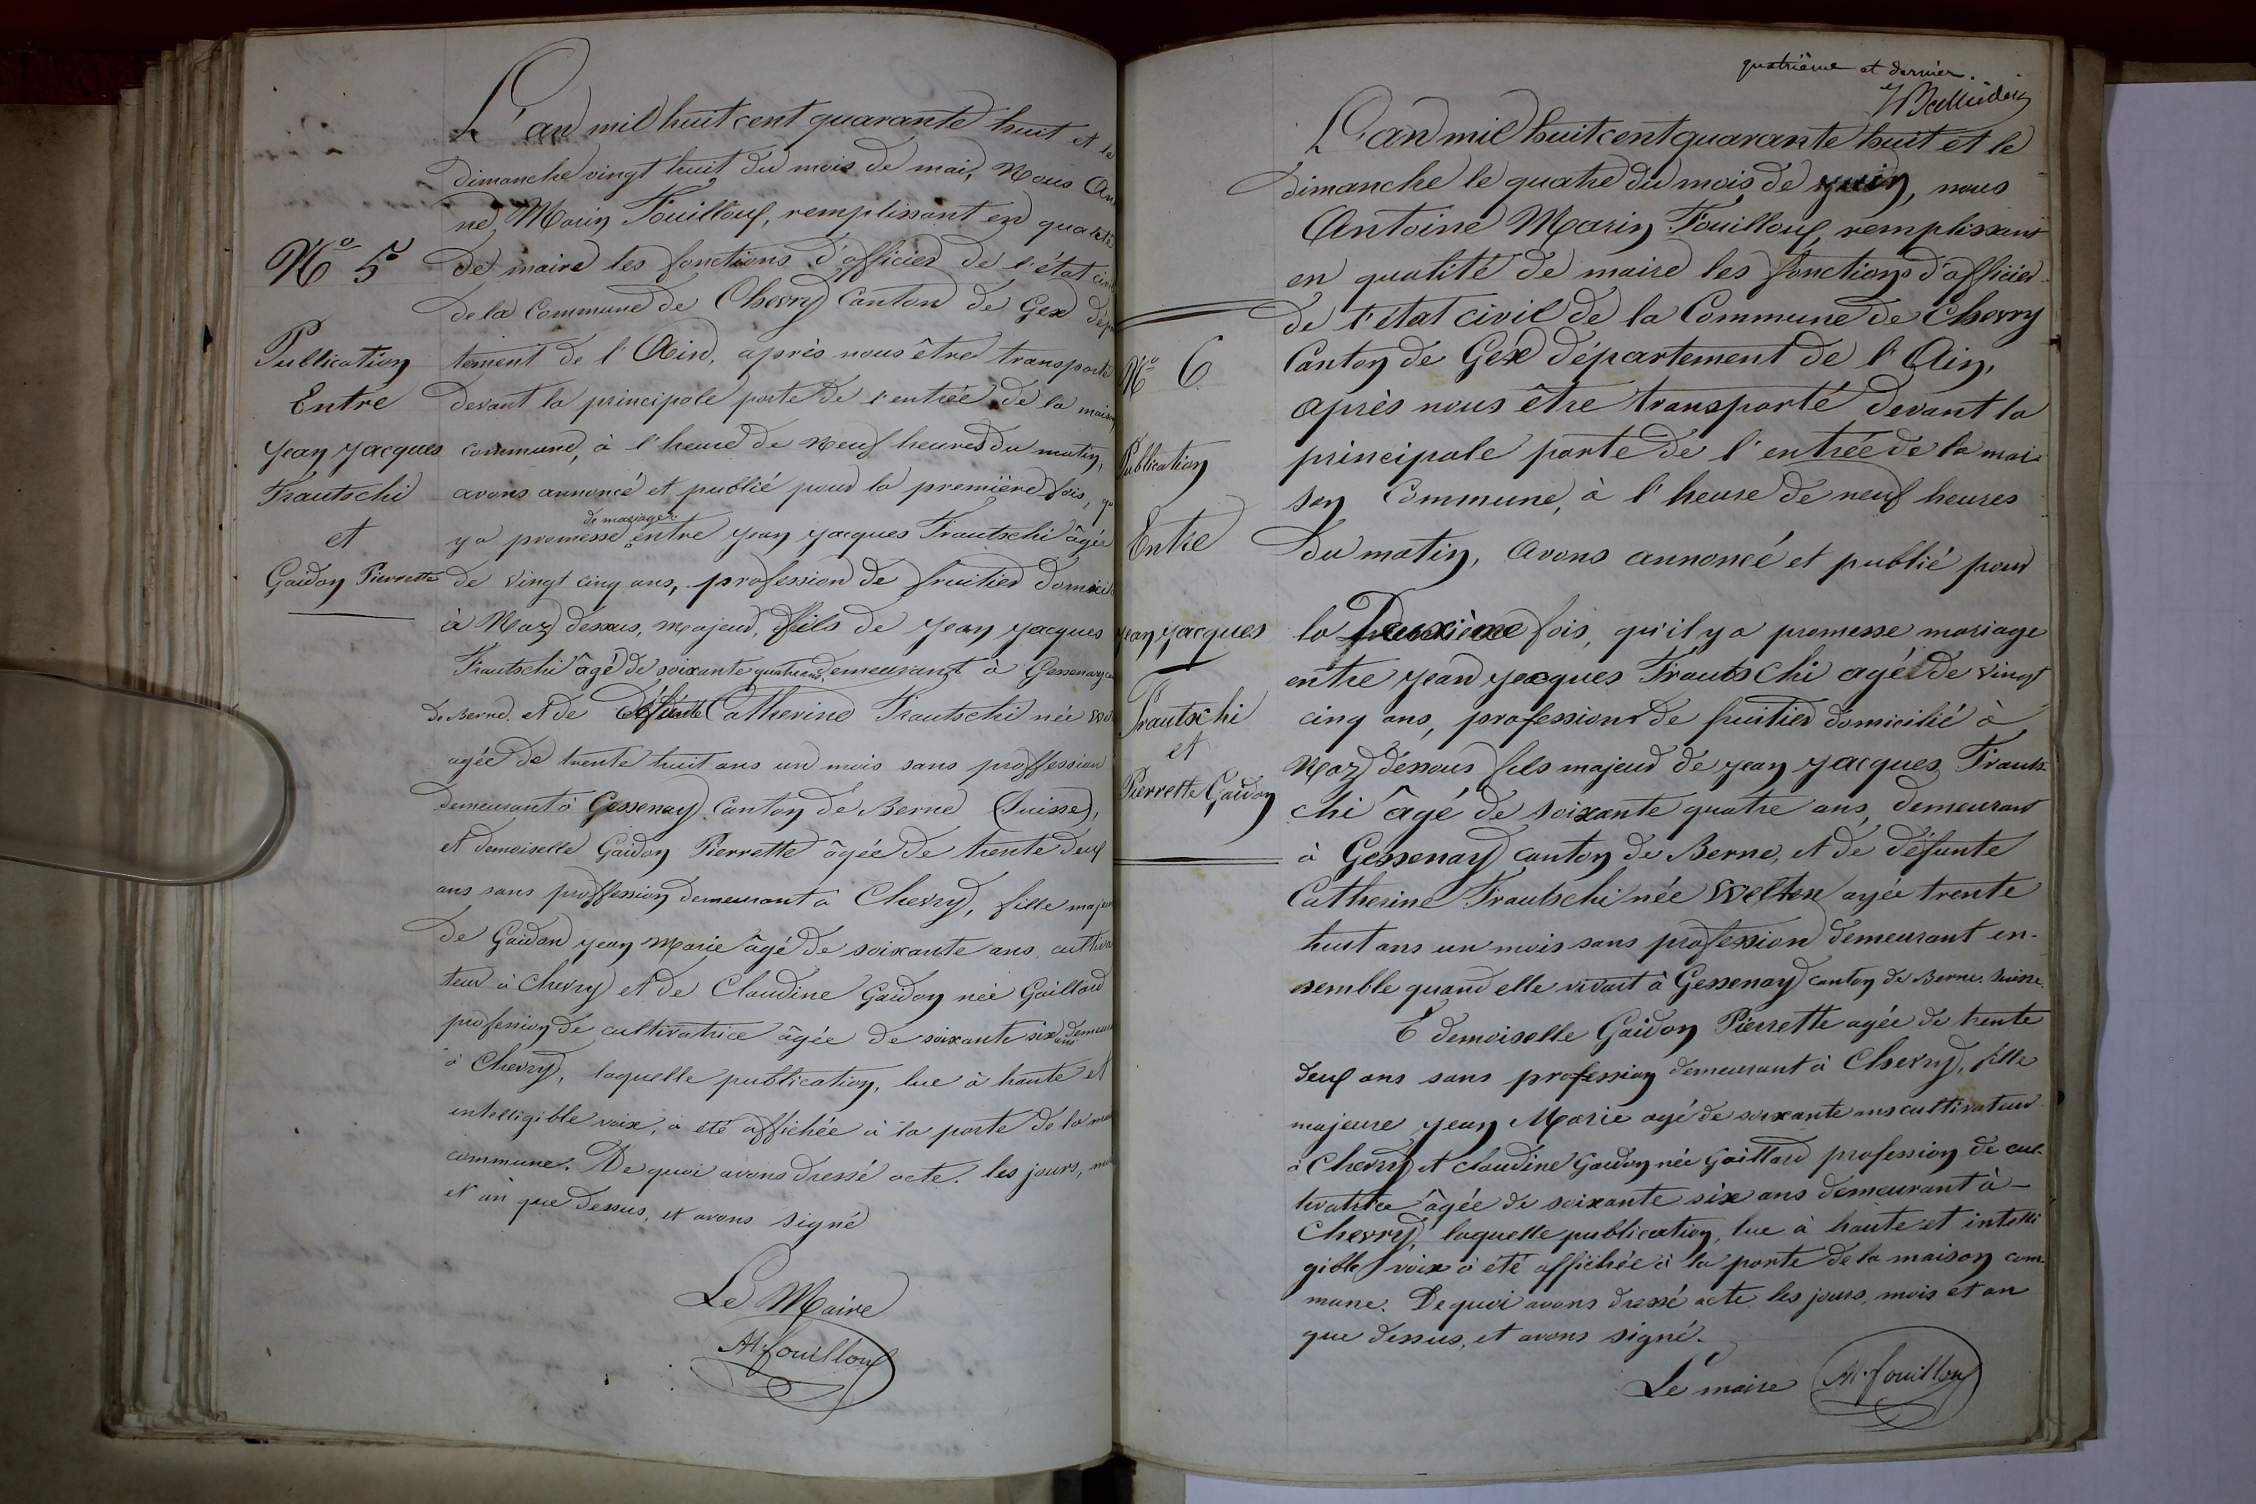 N° 5
Publication
Entre
Jean Jacques
Trautschi
et
Gaidon Pierrette
L'an mil huit cent quarante huit et le
dimanche vingt huit du mois de mai, Nous An
ne Marin Fouilloux, remplissant en qualité
de maire les fonctions d'officier de l'état civi
de la Commune de Chevry Canton de Gex dép
tement de l'Ain, après nous être transporté
devant la principale porte de l'entrée de la maison
commune, à l'heure de neuf heures du matin,
avons annoncé et publié pour la première fois, qu
de mariage
y a promesse entre Jean Jacques Trautschi âgée
de vingt cinq ans, profession de fruitier domicil
à Naz dessus, majeur, fils de Jean Jacques
Trautschi âgé de soixante quatre ans demeurant à Gessenay can
de Berne. et de défunte Catherine Trautschi née
agée de trente huit ans un mois sans proffession
demeurant à Gessenay Canton de Berne (Suisse),
et demoiselle Gaidon Pierrette âgée de trente deux
ans sans proffession demeurant à Chevry, fille majeu
de Gaidon Jean Marie âgé de soixante ans cultiva
teur à Chevry et de Claudine Gaidon née Gaillard
profession de cultivatrice âgée de soixante six ans demeura
à Chevry, laquelle publication, lue à haute et
intelligible voix, a été affichée à la porte de la mai
commune. De quoi avons dressé acte. les jours, moi
et an que dessus, et avons signé
Le Maire
AM fouilloux
quatrième et dernier.
N° 6
Publication
Entre
Jean Jacques
Trautschi
et
Pierrette Gaidon
L'an mil huit cent quarante huit et le
dimanche le quatre du mois de juin, nous
Antoine Marin Fouilloux, remplissant
en qualité de maire les fonctions d'officier
de l'etat civil de la Commune de Chevry
Canton de Gex département de l'Ain,
après nous être transporté devant la
principale porte de l'entrée de la mai-
son Commune, à l'heure de neuf heures
du matin, avons annoncé et publié pour
la Deuxième fois, qu'il y a promesse mariage
entre Jean Jacques Trautschi agé de vingt
cinq ans, profession de fruitier domicilié à
Naz dessous fils majeur de Jean Jacques Trauts-
chi âgé de soixante quatre ans, demeurant
à Gessenay canton de Berne, et de défunte
Catherine Trautschi née Welten agée trente
huit ans un mois sans profession demeurant en-
semble quand elle vivait à Gessenay canton de Berne. Suisse.
E demoiselle Gaidon Pierrette agée de trente
deux ans sans profession demeurant à Chevry, fille
majeure Jean Marie agé de soixante ans cultivateur
à Chevry et Claudine Gaidon née Gaillard profession de cul-
tivatrice âgée de soixante six ans demeurant à
Chevry, laquelle publication, lue à haute et intelli
gible voix a été affichée à la porte de la maison com-
mune. De quoi avons dressé acte les jours, mois et an
que dessus, et avons signé.
Le maire AM fouilloux